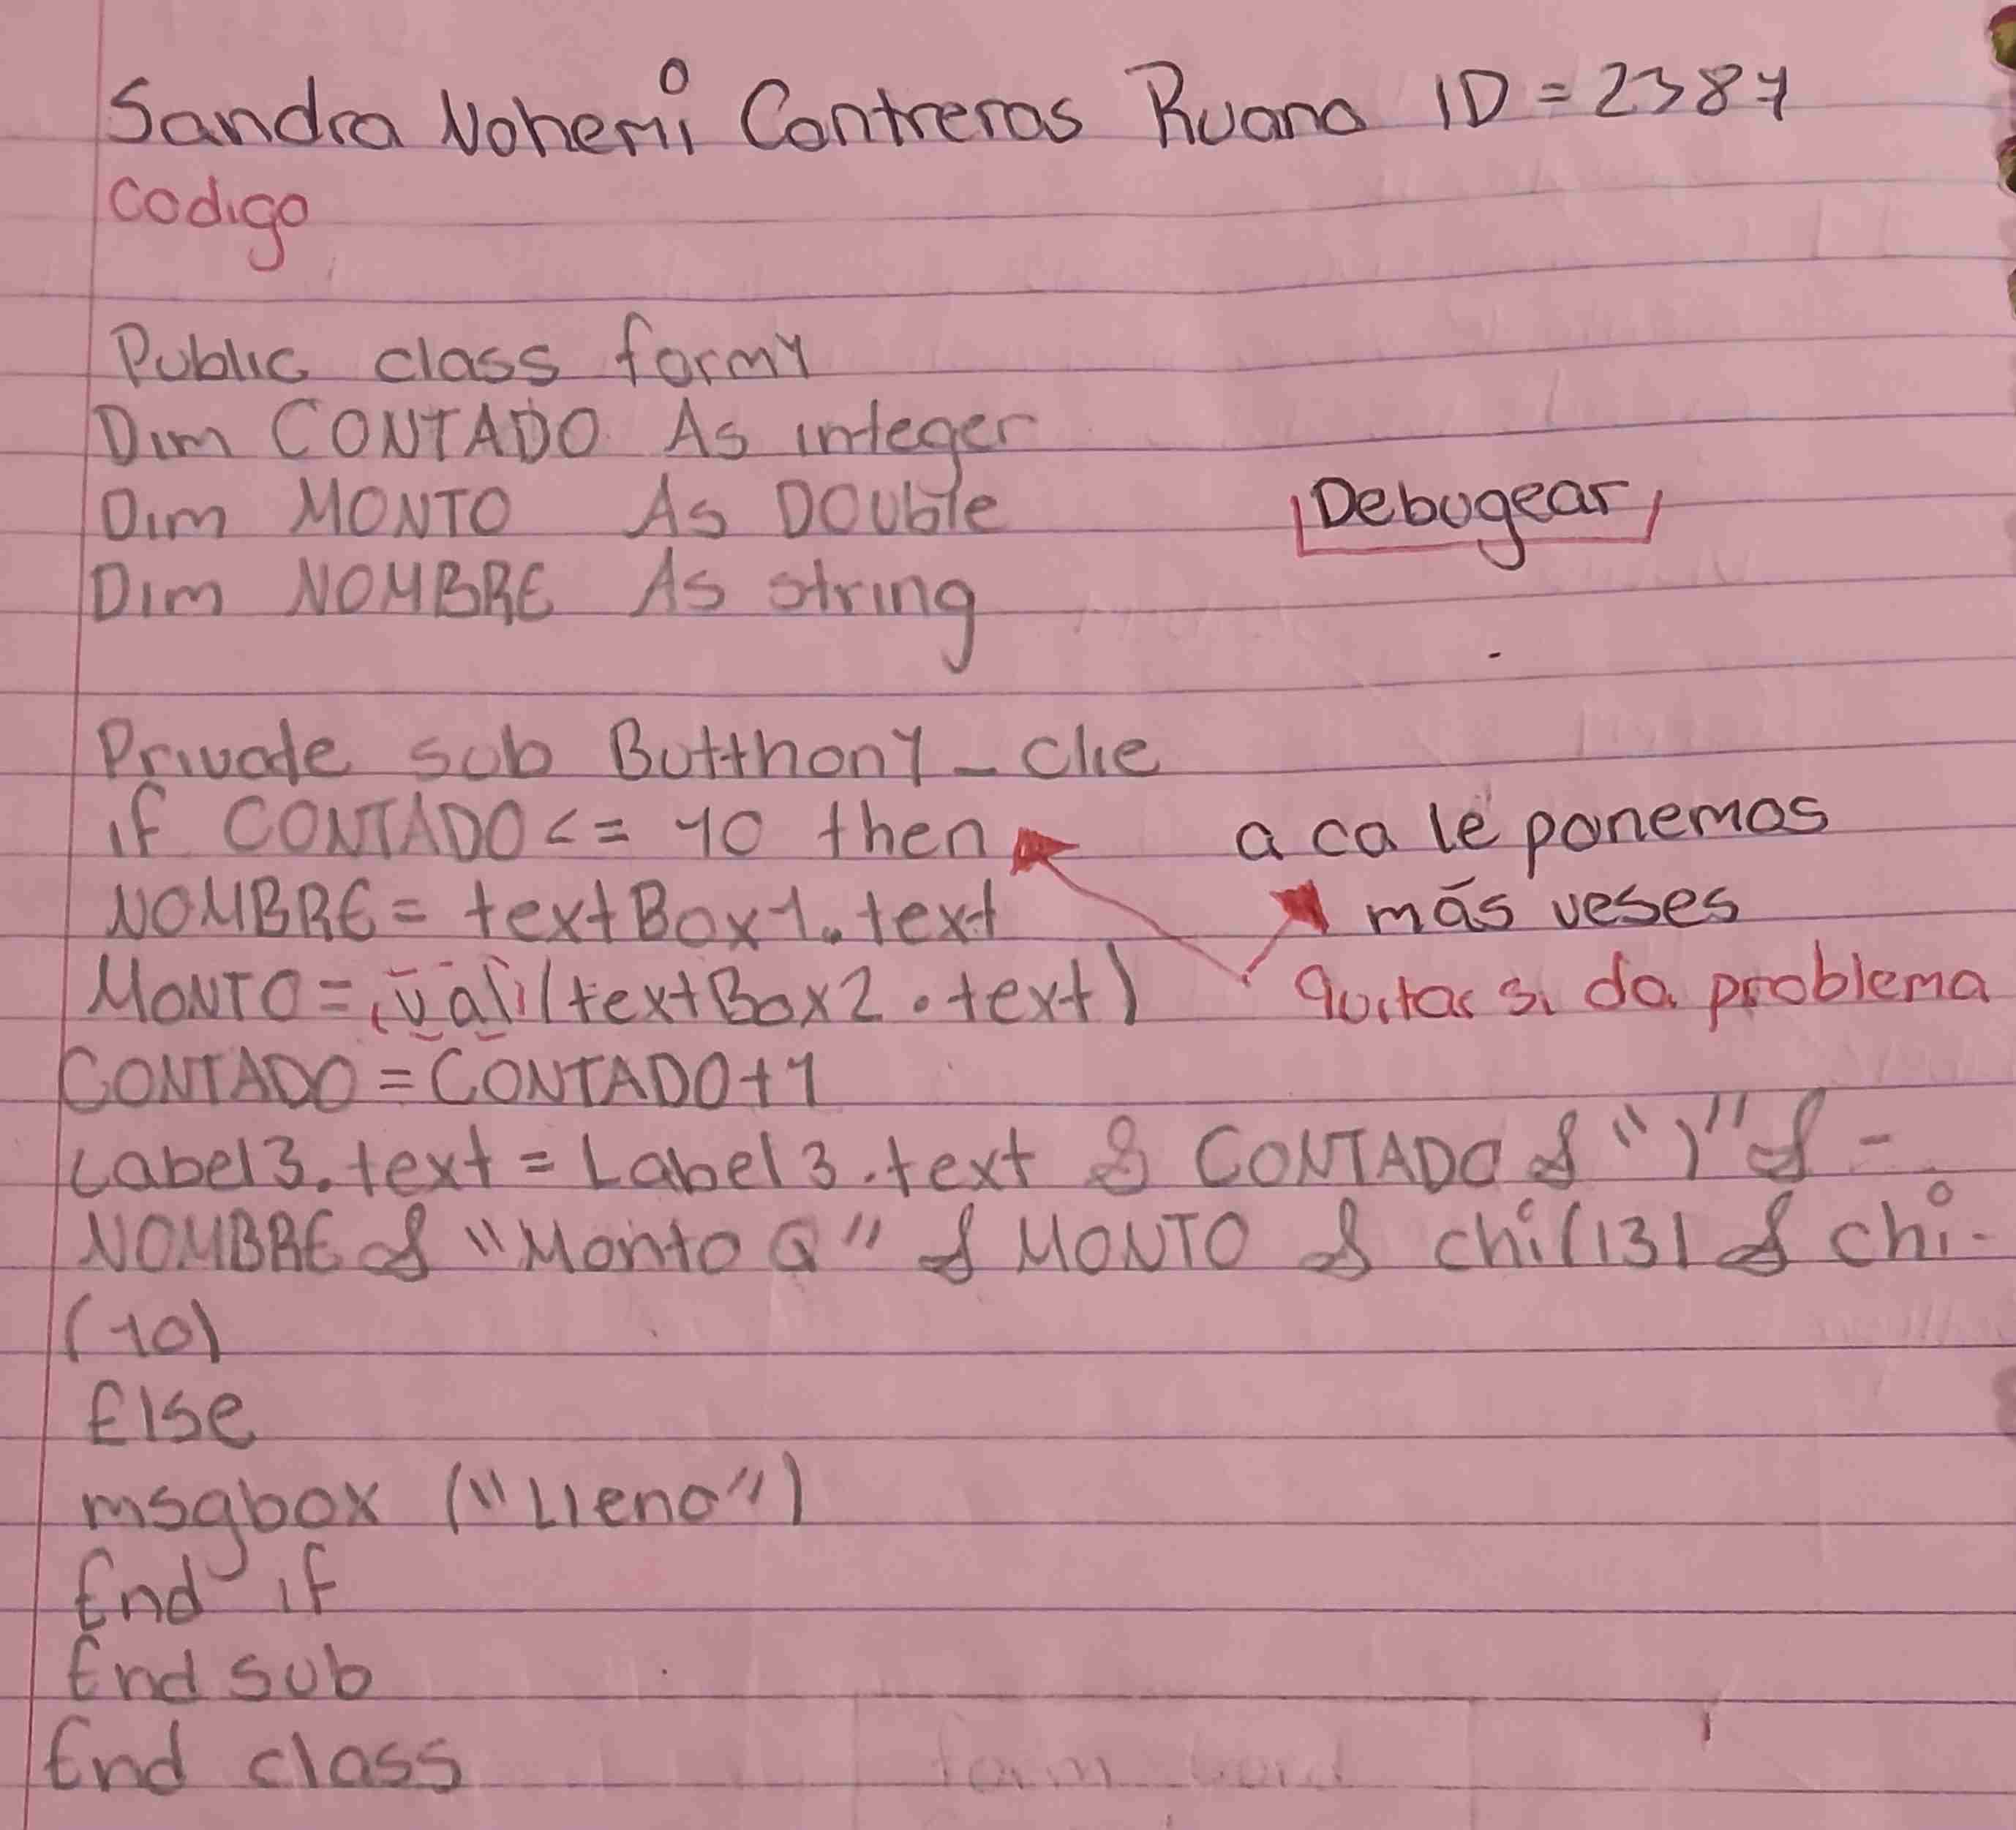 Sandra Nohemi Contreras Ruano ID = 2387
Codigo
Public class form1
Dim CONTADO As integer
Dim MONTO As DOUble
Debugear
Dim NOMBRE As string
Private sub Butthon1_Clie
if CONTADO <= 10 then
a ca le ponemos
NOMBRE = textBox1.text
más veses
MONTO = val(textBox2.text)
quitar si da problema
CONTADO = CONTADO+1
Label3.text = Label3.text & CONTADO & ")" & -
NOMBRE & "Monto Q" & MONTO & chi(13) & chi-
(10)
Else
msgbox ("Lleno")
End if
End sub
End class